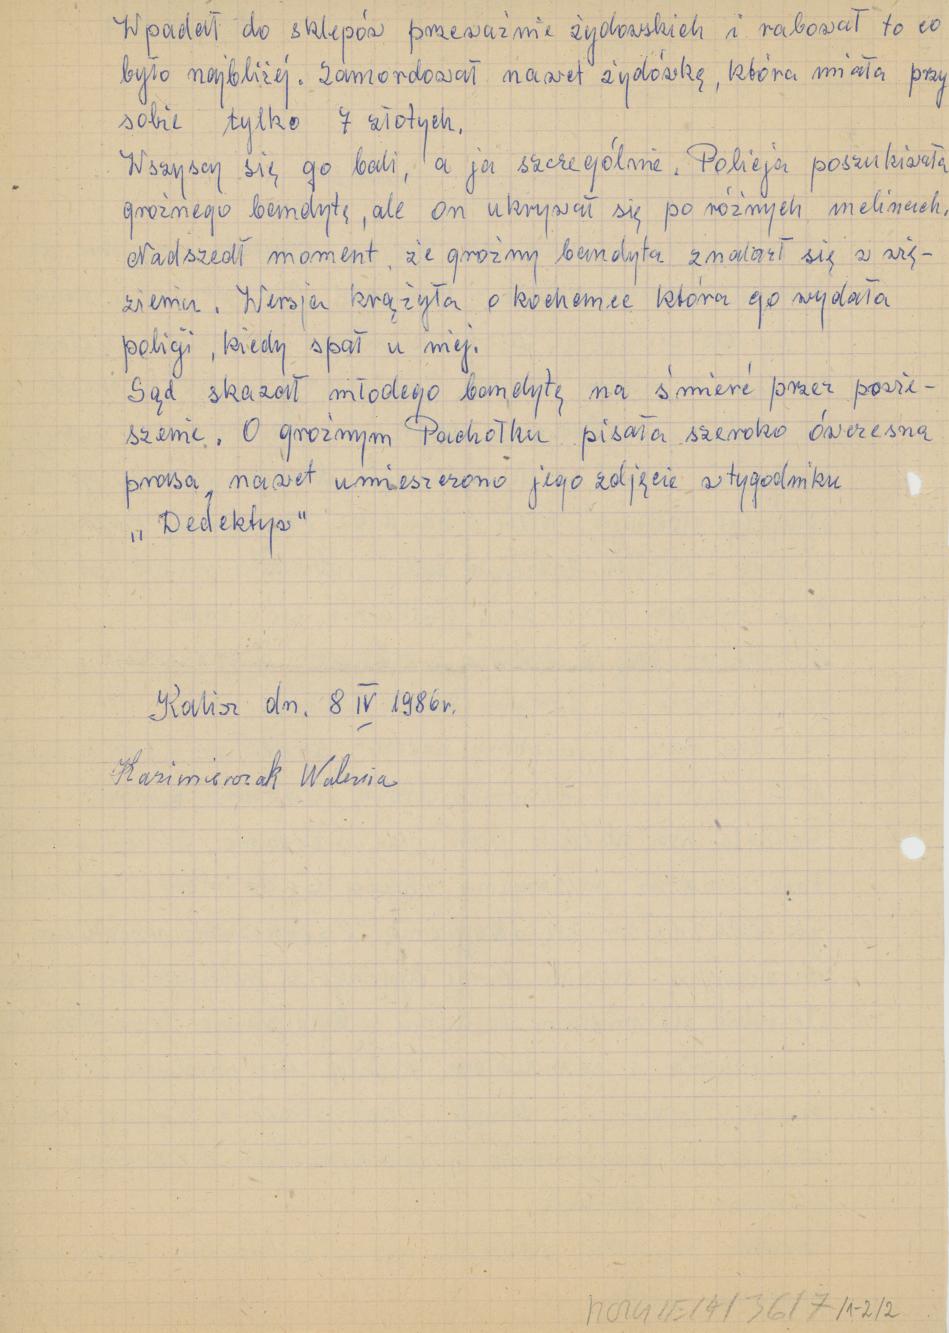 Wpadał do sklepów przeważnie żydowskich i rabował to co
było najbliżej. Zamordował nawet żydówkę, która miała przy
sobie tylko 7 złotych.
Wszyscy się go bali, a ja szczególnie. Policja poszukiwała
groźnego bandytę, ale on ukrywał się po różnych melinach.
Nadszedł moment, że groźny bandyta znalazł się w wię-
zieniu. Wersja krążyła o kochance która go wydała
policji, kiedy spał u niej.
Sąd skazał młodego bandytę na śmierć przez powie-
szenie. O groźnym Pachołku pisała szeroko ówczesna
prasa, nawet umieszczono jego zdjęcie w tygodniku
„Dedektyw"
Kalisz dn. 8 IV 1986r.
Kazimierczak Waleria
/E/4/36/7/1-2/2